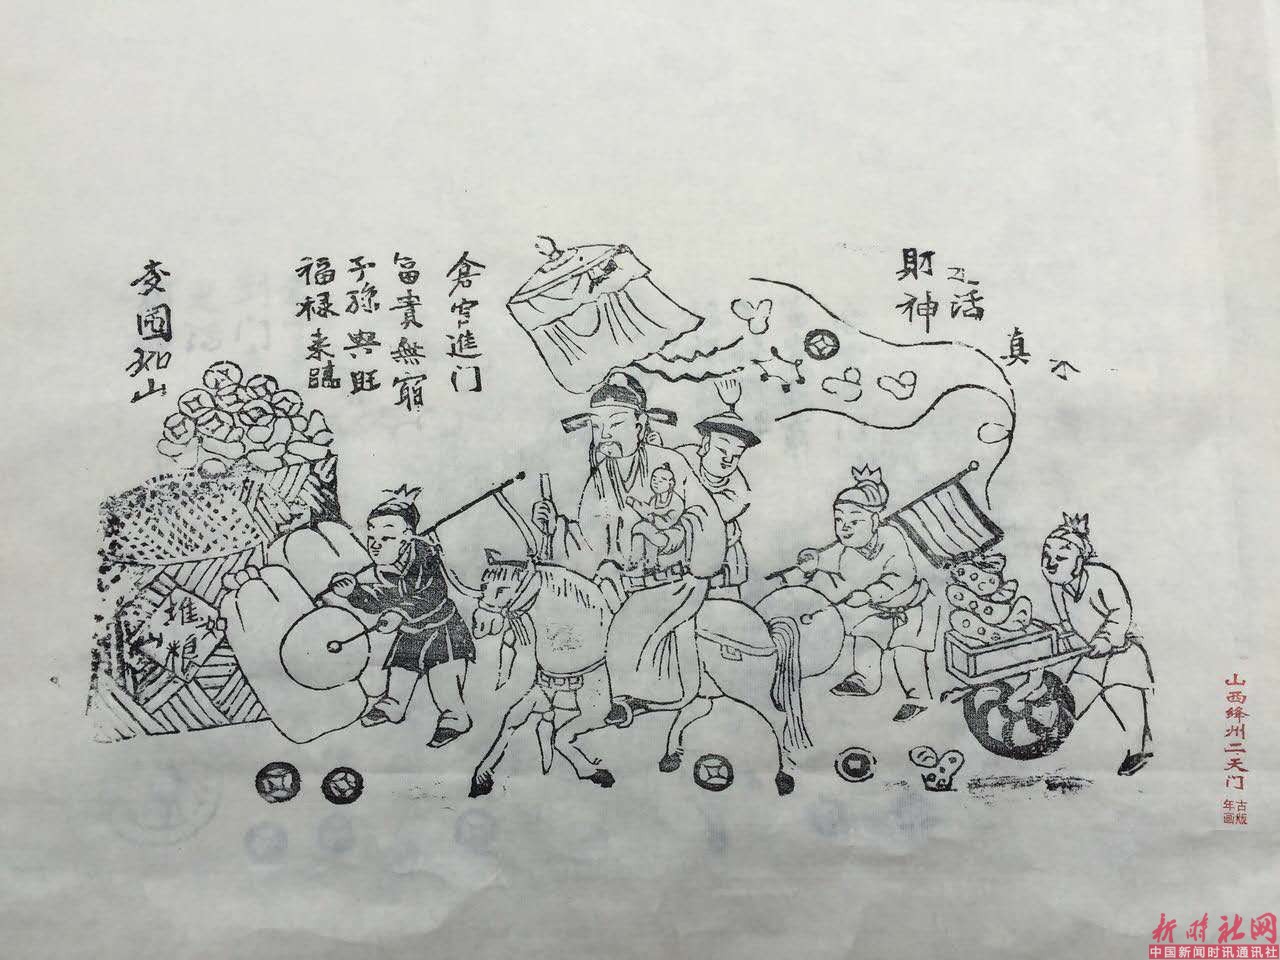 真
之活
財神
倉官進门
富貴無窮
子孫興旺
福禄来臨
麦囤如山
堆粮如山
山西绛州二天门
古版年画
新时社网
中国新闻时讯通讯社